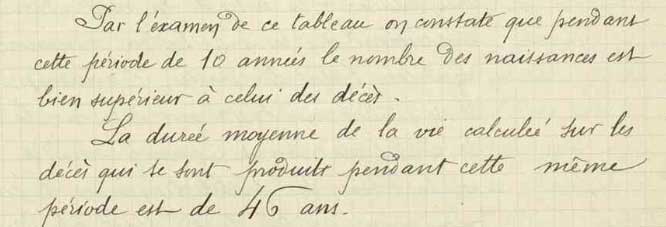 Par l'éxamen de ce tableau on constate que pendant
cette période de 10 années le nombre des naissances est
bien supérieur à celui des décès.
La durée moyenne de la vie calculeé sur les
décès qui se sont produits pendant cette même
période est de 46 ans.